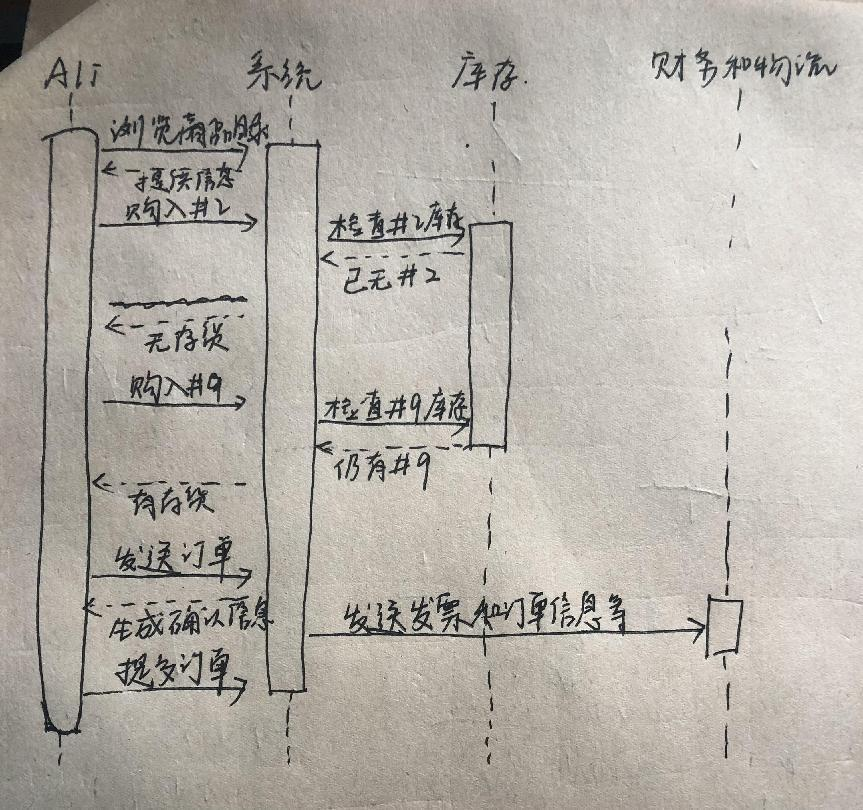 Ali
系统
库存.
财务和物流
浏览商品目录
提供信息
购入#2
检查#2库存
已无#2
无存货
购入#9
检查#9库存
仍有#9
有存货
发送订单
生成确认信息
发送发票和订单信息等
提交订单